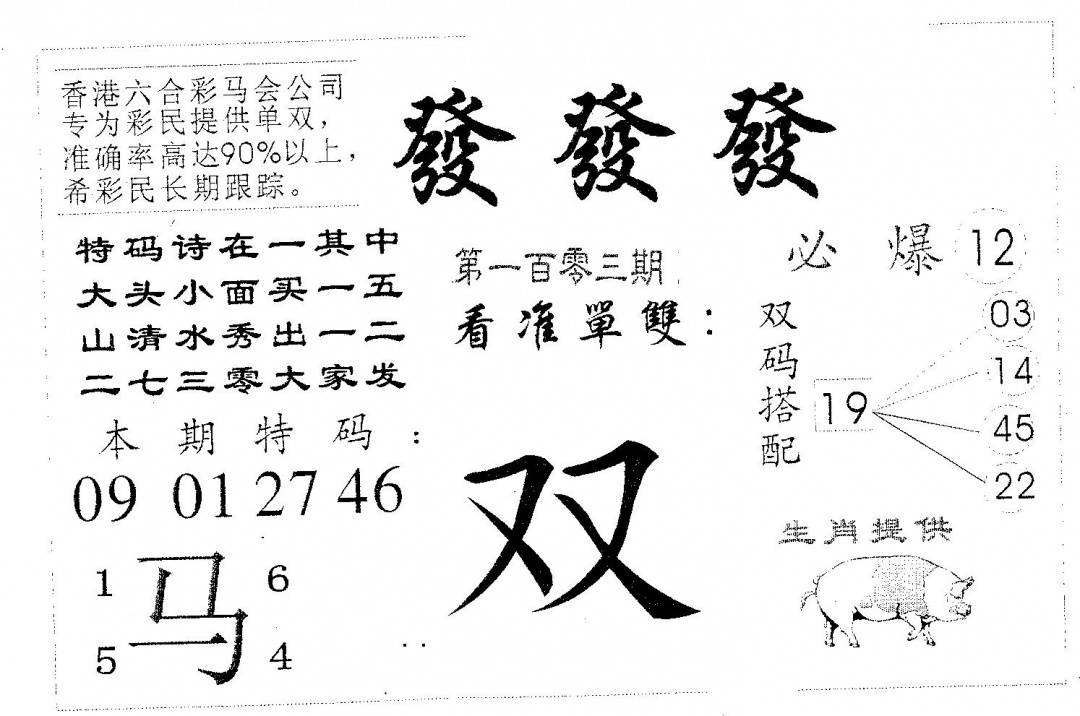 香港六合彩马会公司
专为彩民提供单双，
准确率高达90%以上，
希彩民长期跟踪。
發發發
特码诗在一其中
大头小面买一五
山清水秀出一二
二七三零大家发
第一百零三期
看准單雙：
必爆12
双码搭配
19
03
14
45
22
本期特码：
09 01 27 46
双
1 6
马
5 4
生肖提供